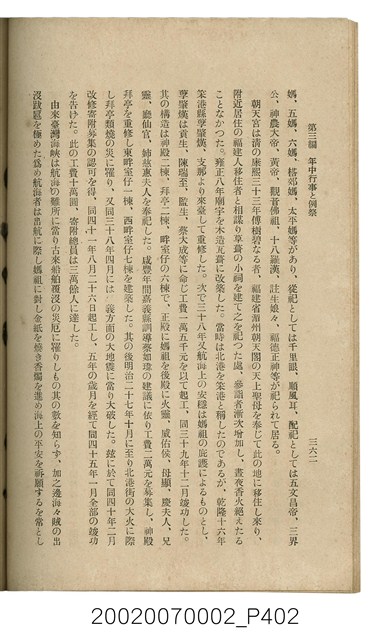 第三編　年中行事と例祭　三六二
媽、五媽、六媽、糖郊媽、太平媽等があり、從祀としては千里眼、順風耳、配祀としては五文昌帝、三界
公、神農大帝、黃帝、觀音佛祖、十八羅漢、註生娘々、福德正神等が祀られて居る。
朝天宮は清の康熙三十三年僧樹碧なる者、福建省湄州朝天閣の天上聖母を奉じて此の地に移住し來り、
附近居住の福建人移住者と相謀り草葺の小祠を建て之を祀つた處、參詣者漸次增加し、晝夜香火絕えたる
ことなかつた。雍正八年廟宇を木造瓦葺に改築した。當時は北港を笨港と稱したのであるが、乾隆十六年
笨港縣薛肇熿は、支那より來臺して重修した。次で三十八年又航海上の安穩は媽祖の庇護によるものとし、
薛肇熿は貢生、陳瑞玉、監生、蔡大成等に命じ工費一萬五千元を以て起工し、同三十九年十二月竣功した。
其の構造は神殿二棟、拜亭二棟、畔室仔の六棟で、正殿に媽祖を後殿に火靈、威佑侯、母顯、慶夫人、兄
靈、廳仙官、姉慈惠夫人を奉祀した。咸豐年間嘉義縣訓導蔡如璋の建議に依り工費二萬元を募集し、神殿
拜亭を重修し東畔室仔一棟、西畔室仔七棟を建築した。其の後明治二十七年十月に至り北港街の大火に際
し拜亭類燒の災に罹り、又同三十八年四月には　義方面の大地震に當り大破した。玆に於て同四十年二月
改修寄附募集の認可を得、同四十一年八月二十六日起工し、五年の歲月を經て同四十五年一月全部の竣功
を告げた。此の工費十萬圓、寄附總員は三萬餘人に達した。
由來臺灣海峽は航海の難所に當り古來船舶覆沒の災厄に罹りしもの其の數を知らず、加之邊海々賊の出
沒跋扈を極めた爲め航海者は出航に際し媽祖に對し金紙を燒き香燭を進め海上の平安を祈願するを常とし
20020070002_P402